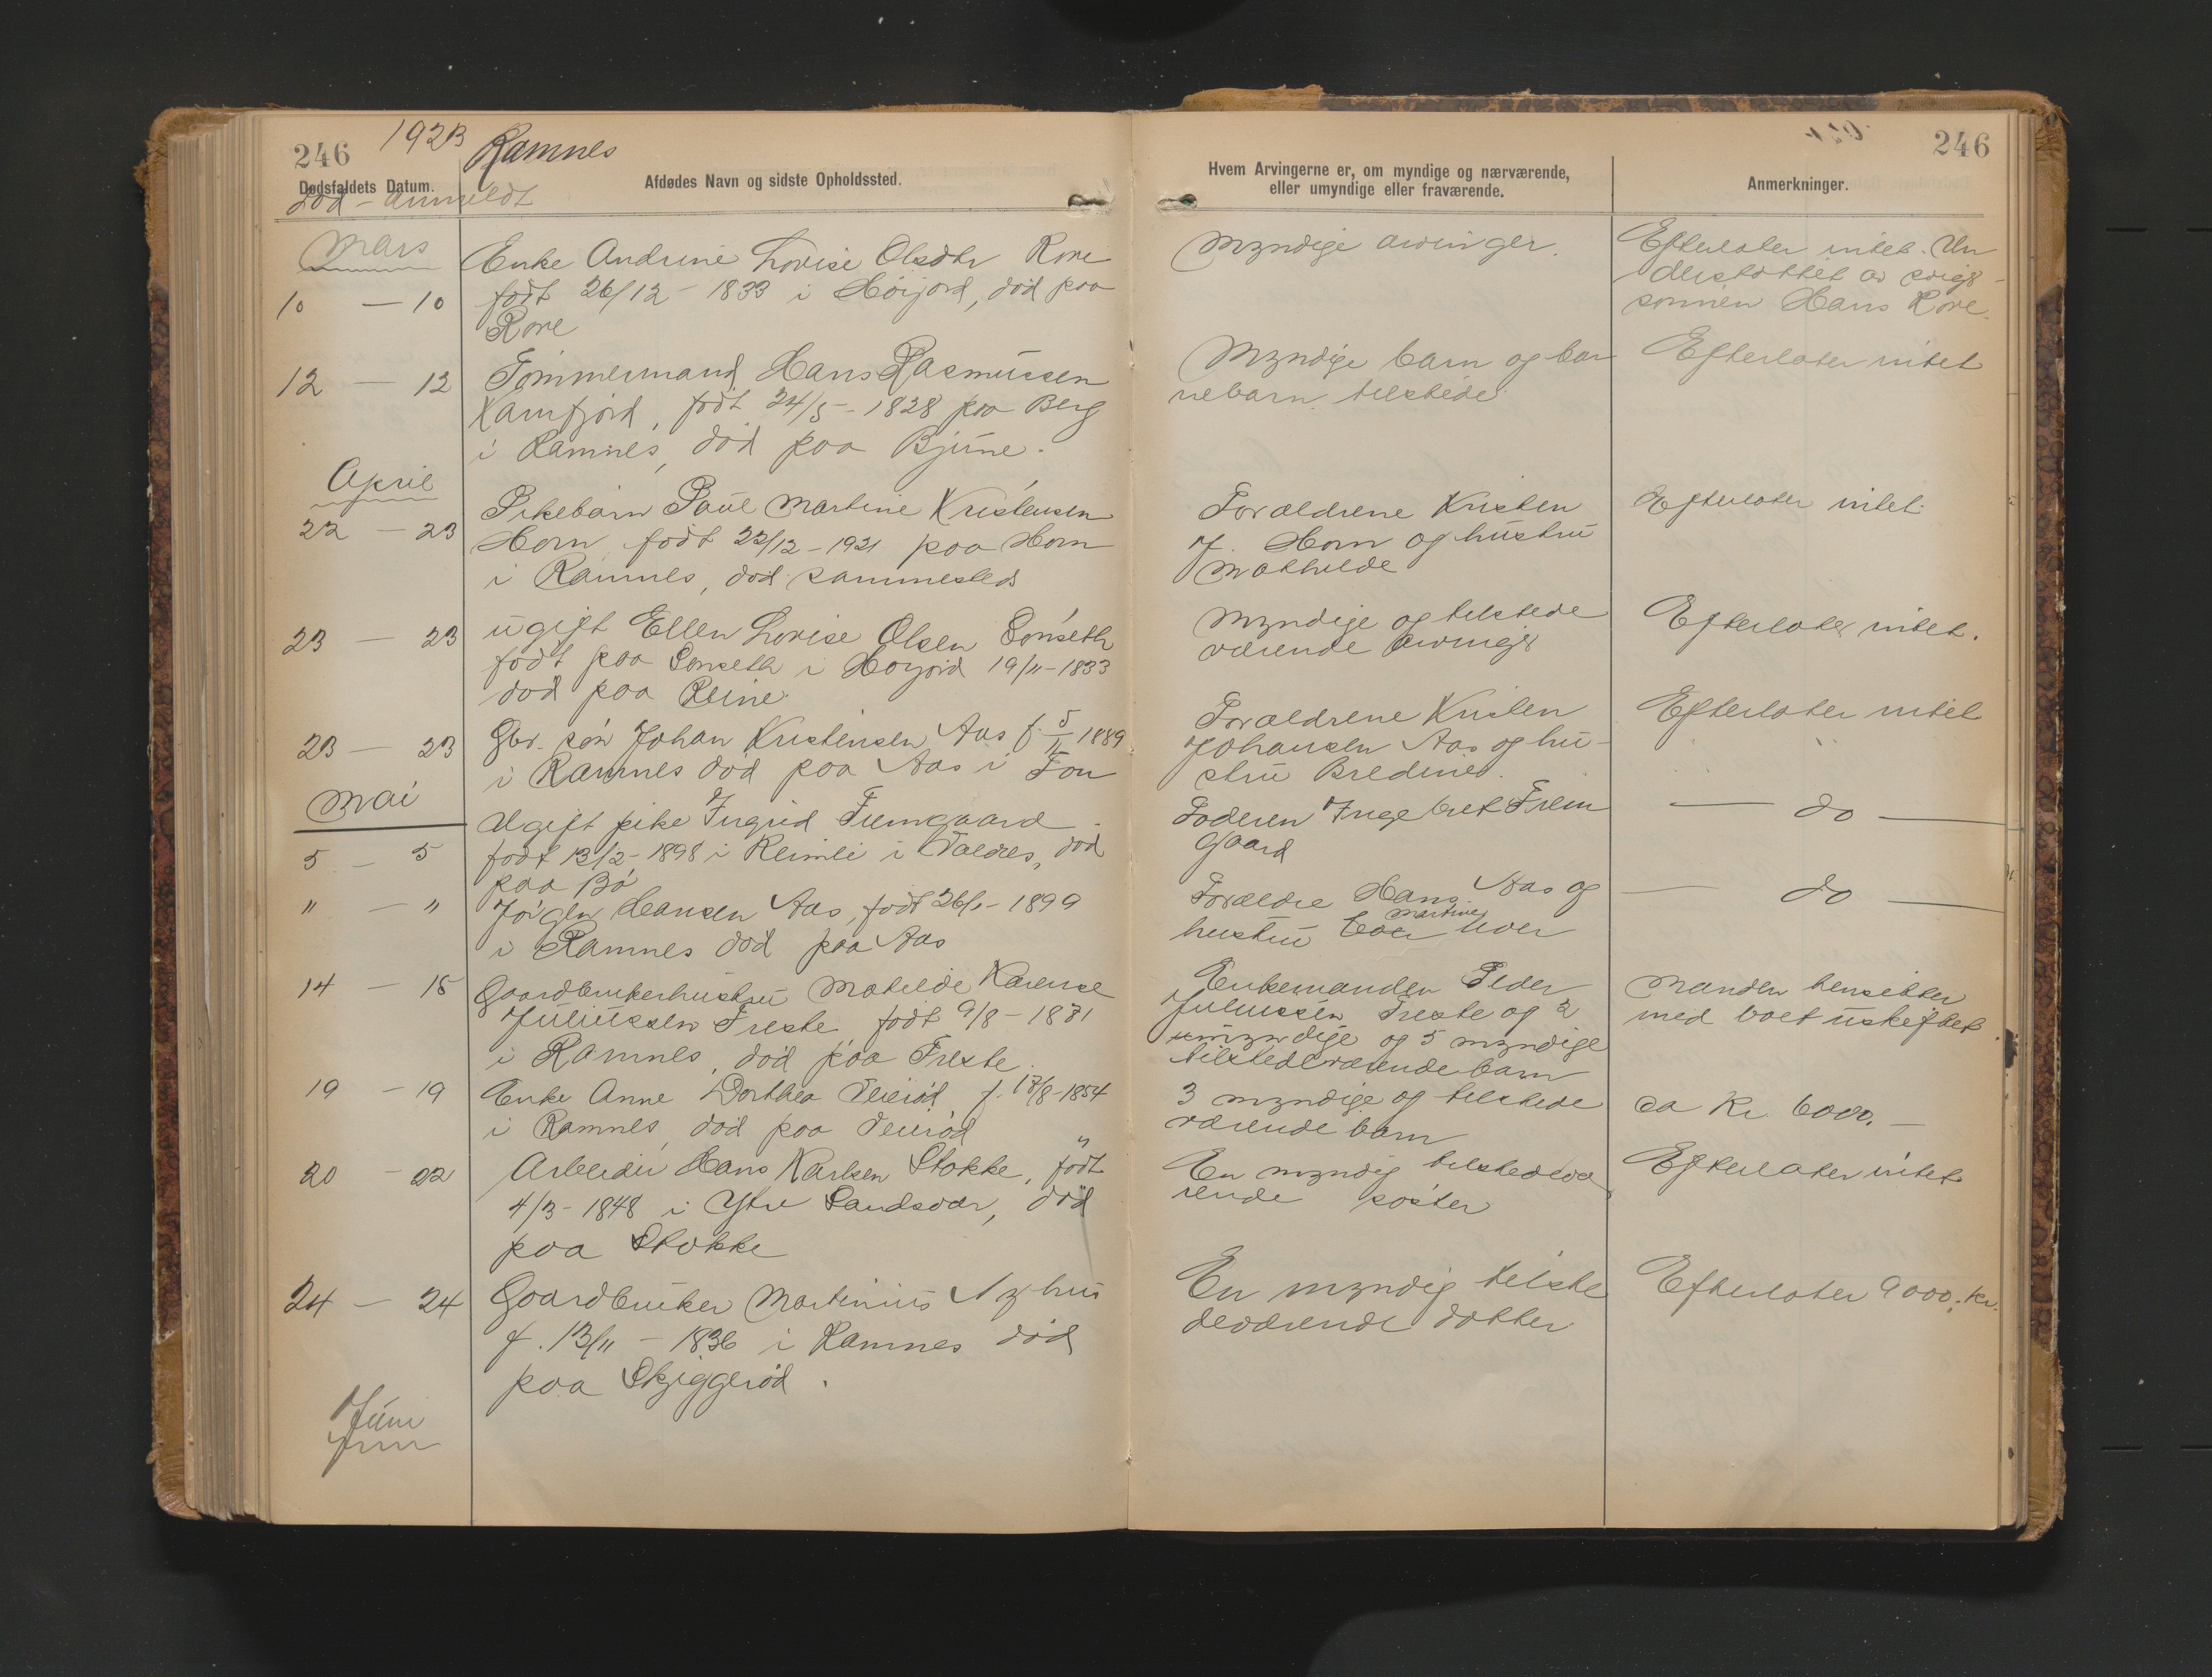 246 1923 Ramnes
Dødsfaldets Datum. Afdødes Navn og sidste Opholdssted.
död - anmeldt
Mars
10 — 10
Enke Andrine Lovise Olsdtr Rove
født 26/12 - 1833 i Höijord, död paa
Rove
12 — 12
Tömmermand Hans Rasmussen
Kamfjord, født 24/5 - 1828 paa Berg
i Ramnes, död paa Bjune.
April
22 — 23
Pikebarn Paul Martine Kristensen
Horn født 22/12 - 1921 paa Horn
i Ramnes, död sammesteds
23 — 23
ugift Ellen Lovise Olsen Sönseth
født paa Sönseth i Höyjord 19/11 - 1833
död paa Reine
23 — 23
Gbr. sön Johan Kristensen Aas f. 5/11 1889
i Ramnes död paa Aas i Fon
Mai
5 — 5
Ugift pike Ingrid Fremgaard
født 13/2 - 1898 i Reinli i Valdres, död
paa Bö
" — "
Jörgen Hansen Aas, født 26/1 - 1899
i Ramnes död paa Aas
14 — 15
Gaardbrukerhustru Matilde Karense
Juliussen Freste født 9/8 - 1871
i Ramnes, död paa Freste.
19 — 19
Enke Anne Dorthea Teieröd f. 17/8 - 1854
i Ramnes, död paa Teieröd
20 — 22
Arbeider Hans Karlsen Stokke, født
4/3 - 1848 i Ytre Sandsvær, död
paa Stokke
24 — 24
Gaardbruker Martinius Nyhus
f. 13/11 - 1836 i Ramnes död
paa Skjiggeröd.
Juni
Juni
246
Hvem Arvingerne er, om myndige og nærværende,
eller umyndige eller fraværende.
Anmerkninger.
Myndige arvinger.
Efterlater intet. Un
derstöttet av sviger
sönnen Hans Rove.
Myndige barn og bar
nebarn tilstede
Efterlater intet
Forældrene Kristen
J. Horn og hustru
Mathilde
Efterlater intet.
Myndige og tilstede
værende arvinger
Efterlater intet.
Forældrene Kristen
Johansen Aas og hu-
stru Bredine.
Efterlater intet
" "
Faderen Ingebret Frem
gaard
— do —
Forældre Hans Aas og
Martine
hustru
— do —
Enkemanden Peder
Juliussen Freste og 2
umyndige og 5 myndige
tilstedeværende barn
Manden hensitter
med boet uskiftet.
3 myndige og tilstede
værende barn
ca Kr. 6000. —
En myndig tilstedevæ
rende söster
Efterlater intet
En myndig tilste
deværende datter
Efterlater 9000. kr.